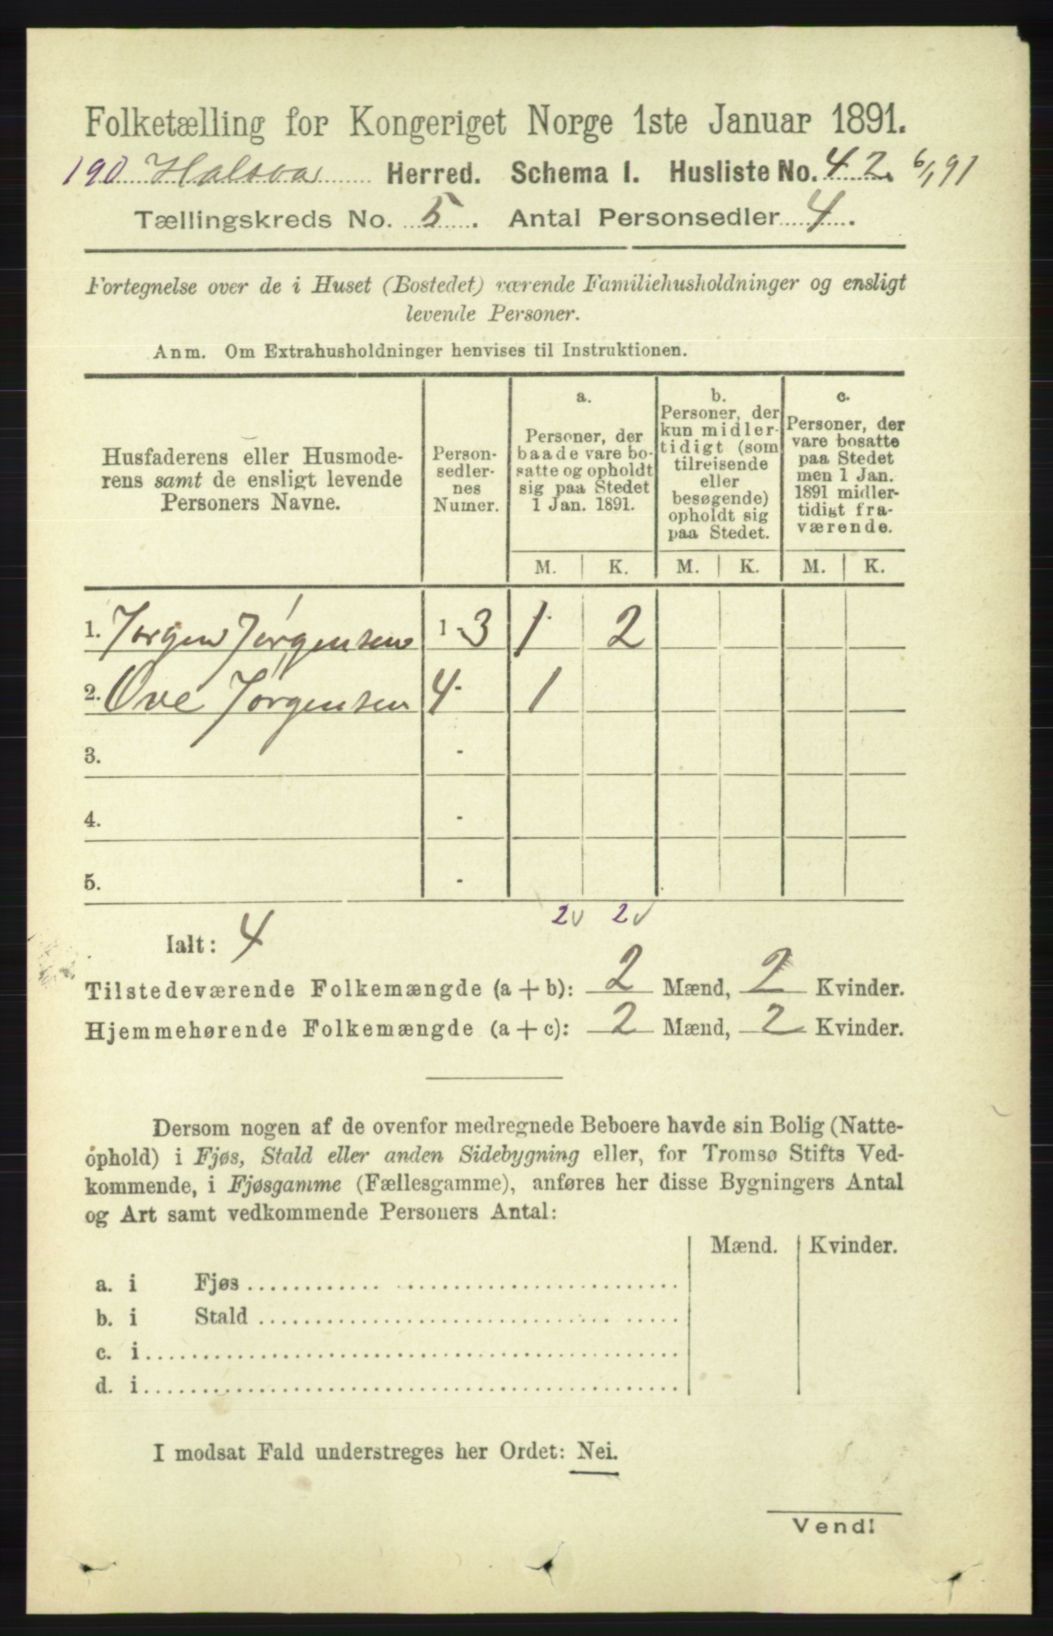 Folketælling for Kongeriget Norge 1ste Januar 1891.
190 Halsaa Herred. Schema I. Husliste No. 42. 6/1 91
Tællingskreds No. 5. Antal Personsedler 4.
Fortegnelse over de i Huset (Bostedet) værende Familiehusholdninger og ensligt
levende Personer.
Anm. Om Extrahusholdninger henvises til Instruktionen.
Husfaderens eller Husmode-
rens samt de ensligt levende
Personers Navne.
Person-
sedler-
nes
Numer.
a.
Personer, der
baade vare bo-
satte og opholdt
sig paa Stedet
1 Jan. 1891.
b.
Personer, der
kun midler-
tidigt (som
tilreisende
eller
besøgende)
opholdt sig
paa Stedet.
c.
Personer, der
vare bosatte
paa Stedet
men 1 Jan.
1891 midler-
tidigt fra-
værende.
M. K. M. K. M. K.
1. Jørgen Jørgensen 1-3 1 2
2. Ove Jørgensen 4- 1
3. -
4. -
5. -
2v 2v
Ialt: 4
Tilstedeværende Folkemængde (a+b): 2 Mænd, 2 Kvinder.
Hjemmehørende Folkemængde (a+c): 2 Mænd, 2 Kvinder.
Dersom nogen af de ovenfor medregnede Beboere havde sin Bolig (Natte-
ophold) i Fjøs, Stald eller anden Sidebygning eller, for Tromsø Stifts Ved-
kommende, i Fjøsgamme (Fællesgamme), anføres her disse Bygningers Antal
og Art samt vedkommende Personers Antal:
Mænd. Kvinder.
a. i Fjøs
b. i Stald
c. i
d. i
I modsat Fald understreges her Ordet: Nei.
Vend!